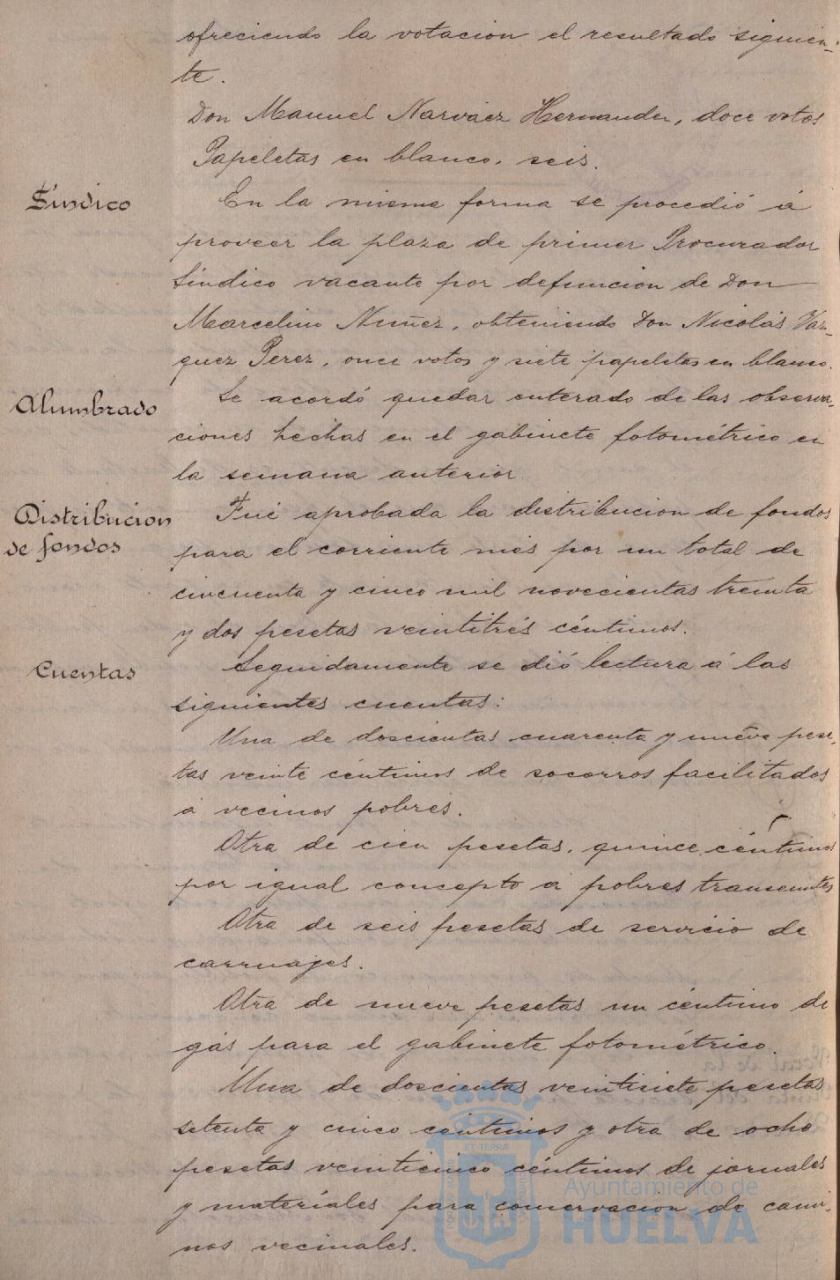 ofreciendo la votacion el resultado siguien-
te.
Don Manuel Narváez Hernandez, doce votos
Papeletas en blanco, seis.
Síndico
En la misma forma se procedió á
proveer la plaza de primer Procurador
Síndico vacante por defuncion de Don
Marcelino Nuñez, obteniendo Don Nicolás Vaz-
quez Perez, once votos y siete papeletas en blanco.
Alumbrado
Se acordó quedar enterado de las observa-
ciones hechas en el gabinete fotométrico en
la semana anterior
Distribucion
de fondos
Fué aprobada la distribucion de fondos
para el corriente més por un total de
cincuenta y cinco mil novecientas treinta
y dos pesetas veintitrés céntimos.
Cuentas
Seguidamente se dió lectura á las
siguientes cuentas:
Una de doscientas cuarenta y nueve pese-
tas veinte céntimos de socorros facilitados
á vecinos pobres.
Otra de cien pesetas, quince céntimos
por igual concepto a pobres transeuntes
Otra de seis pesetas de servicio de
carruajes.
Otra de nueve pesetas un céntimo de
gás para el gabinete fotométrico.
Una de doscientas veintisiete pesetas
setenta y cinco centimos y otra de ocho
pesetas veinticinco céntimos de jornales
y materiales para conservacion de cami-
nos vecinales.
Ayuntamiento de
HUELVA